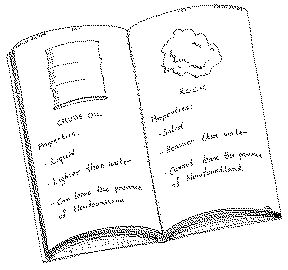 CRUDE OIL
Properties:
- Liquid
- Lighter than water
- Can leave the province
of Newfoundland
ROCK
Properties:
- Solid
- Heavier than water
- Cannot leave the province
of Newfoundland